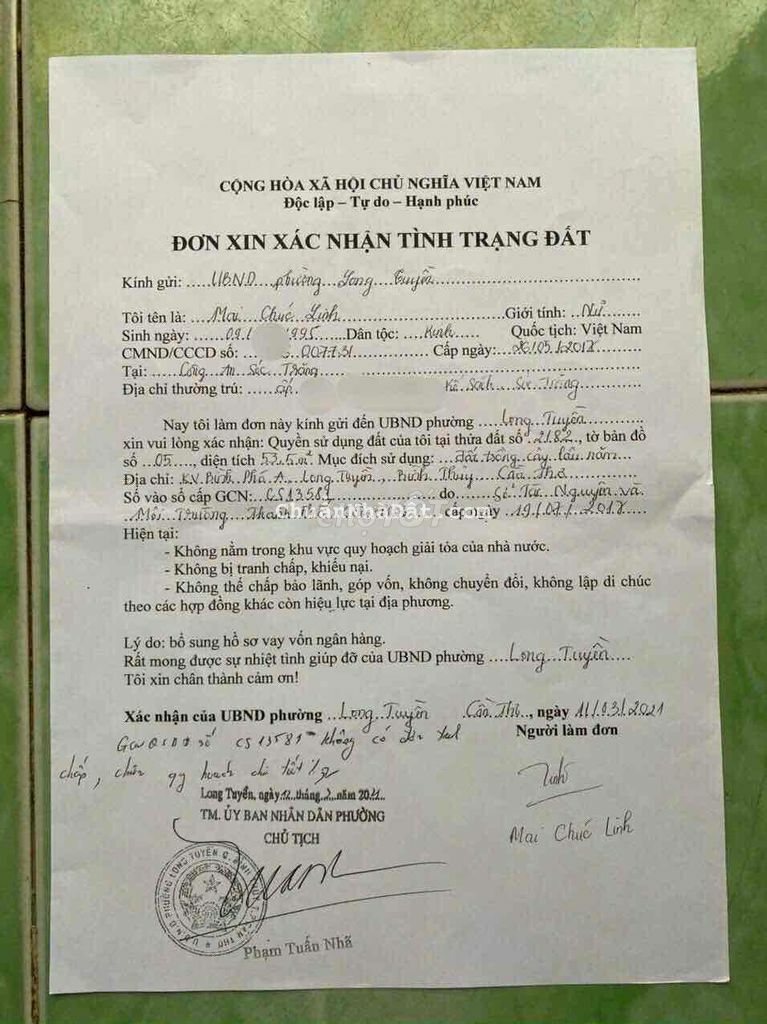 CỘNG HÒA XÃ HỘI CHỦ NGHĨA VIỆT NAM
Độc lập – Tự do – Hạnh phúc
ĐƠN XIN XÁC NHẬN TÌNH TRẠNG ĐẤT
Kính gửi: UBND phường Long Tuyền
Tôi tên là: Mai Chúc Linh Giới tính: Nữ
Sinh ngày: 09/ 1995 Dân tộc: Kinh Quốc tịch: Việt Nam
CMND/CCCD số: 007731 Cấp ngày: 26/05/2017
Tại: Công An Sóc Trăng
Địa chỉ thường trú: ấp Kế Sách Sóc Trăng
Nay tôi làm đơn này kính gửi đến UBND phường Long Tuyền
xin vui lòng xác nhận: Quyền sử dụng đất của tôi tại thửa đất số 2182, tờ bản đồ
số 05, diện tích 53.5m² Mục đích sử dụng: đất trồng cây lâu năm
Địa chỉ: KV. Bình Phó A, Long Tuyền, Bình Thủy, Cần Thơ
Số vào sổ cấp GCN: CS13581 do Sở Tài Nguyên và
Môi Trường Thành cấp ngày 19/07/2017
chuannhadat.com
Hiện tại:
- Không nằm trong khu vực quy hoạch giải tỏa của nhà nước.
- Không bị tranh chấp, khiếu nại.
- Không thế chấp bảo lãnh, góp vốn, không chuyển đổi, không lập di chúc
theo các hợp đồng khác còn hiệu lực tại địa phương.
Lý do: bổ sung hồ sơ vay vốn ngân hàng.
Rất mong được sự nhiệt tình giúp đỡ của UBND phường Long Tuyền
Tôi xin chân thành cảm ơn!
Xác nhận của UBND phường Long Tuyền Cần Thơ, ngày 11/03/2021
Người làm đơn
GCNQSDĐ số CS13581 không có
chấp, quy hoạch
Long Tuyền, ngày 12 tháng năm 2021
TM. ỦY BAN NHÂN DÂN PHƯỜNG
CHỦ TỊCH
Linh
Mai Chúc Linh
U.B.N.D PHƯỜNG LONG TUYỀN
Phạm Tuấn Nhã